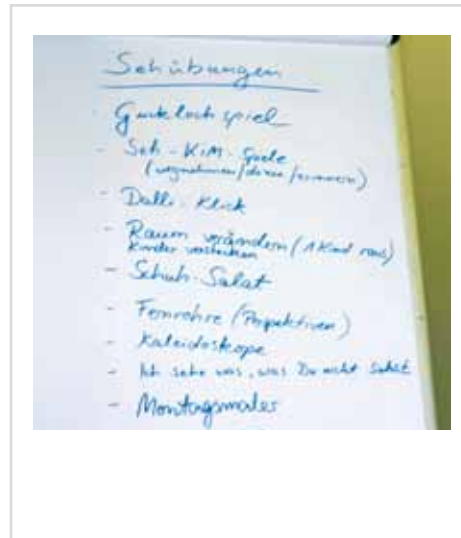 Sehübungen
- Guckloch spiel
- Seh-KiM-Spiele
(wegnehmen / / erinnern)
- Dalli-Klick
- Raum verändern (1 Kind raus)
Kinder verstecken
- Schuh-Salat
- Fernrohre (Perspektiven)
- Kaleidoskope
- Ich sehe was, was Du nicht siehst
- Montagsmaler